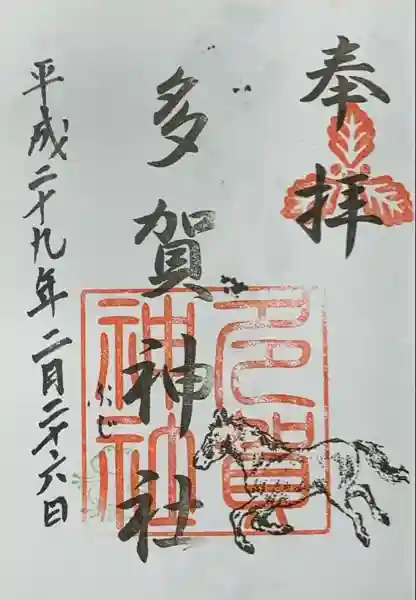 奉拝
多賀神社
多賀神社
平成二十九年二月二十六日